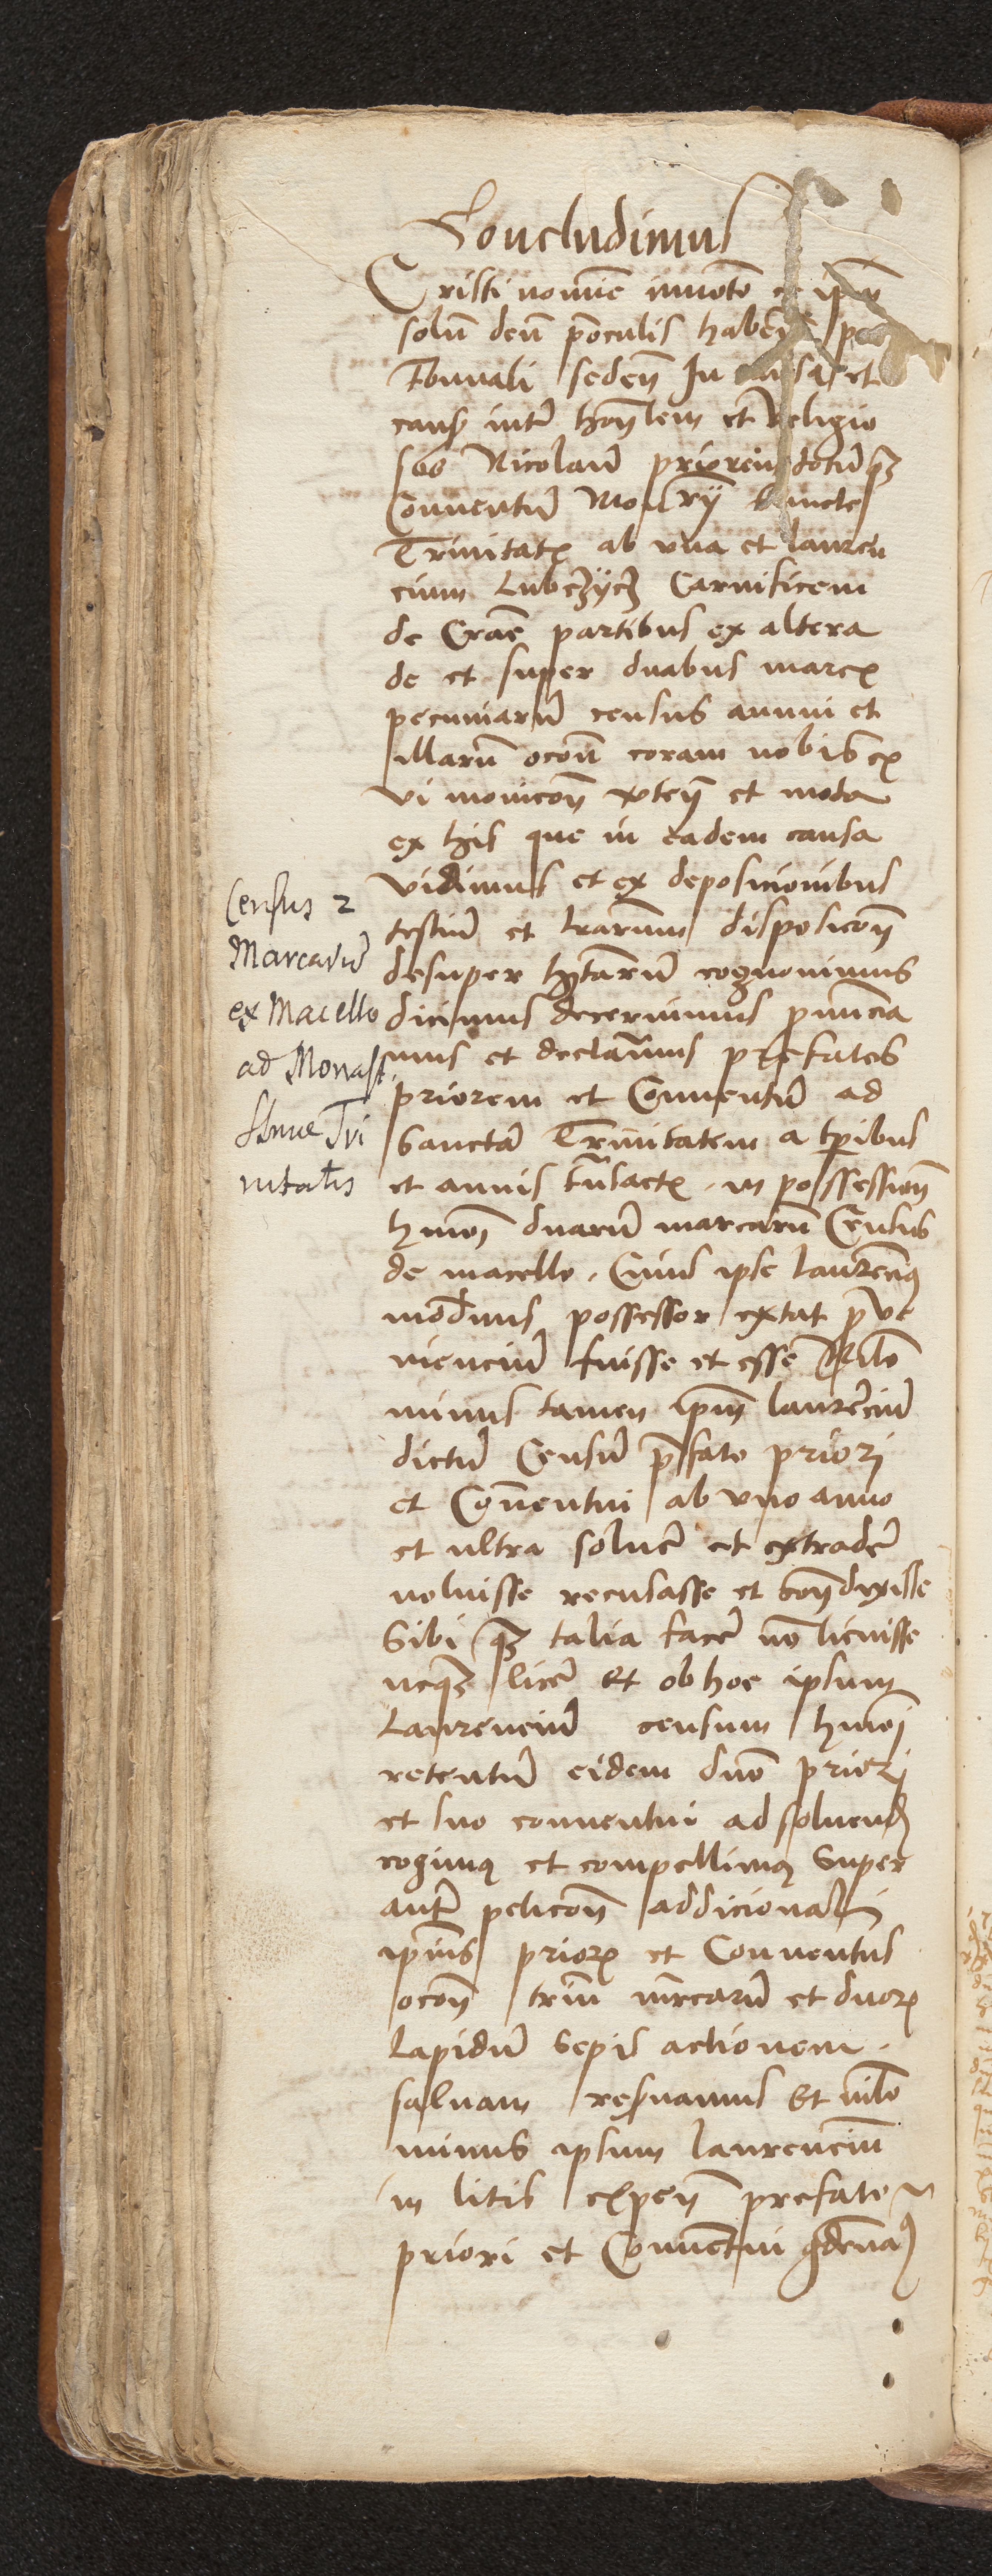 Concludimus
Cristi nomine invoto et ipm
solu deu p oculis haben p
Tbunali seden In causa et
caus inter honlem et Religio
sos Nicolaum priorem totumqz
Conventu Monrÿ sancte
Trinitatis ab una et lauren
cium Lubczÿcz Carnificem
de Crac partibus ex altera
de et super duabus marcis
pecuniaru census annui et
illaru occon coram nobis ex
vi monicon vten et mota
ex his que in eadem causa
vidimus et ex deposicionibus
testiu et lrarum disposicon
desuper hitaru cognovimus
dicimus decernimus pnuncia
mus et declaramus prefatos
priorem et Conventu ad
Sancta Trinitatem a tpribus
et annis transactis in possession
hmoi duaru marcaru Census
de macello. Cuius ipse laurencius
modernus possessor extat p ve
nienciu fuisse et esse Nilo
minus tamen ipm laurenciu
dictu Censu pfato priori
et Conventui ab uno anno
et ultra solvere et extradere
noluisse recusasse et contradixisse
Sibi qz talia facere no licuisse
neqz licere Et ob hoc ipsum
Laurenciu censum hmoi
retentu eidem dno priori
et suo conventui ad solvend
cogimus et compellimus Super
aute peticon addicionali
ipius prioris et Conventus
occon triu marcaru et duoru
Lapidu Sepi actionem
salvam reservamus Et nilo
minus ipsum laurenciu
in litis expen prefato
priori et Conventui 9demna9
Census 2
Marcaru
ex Macello
ad Monast.
Stmae Tri
nitatis